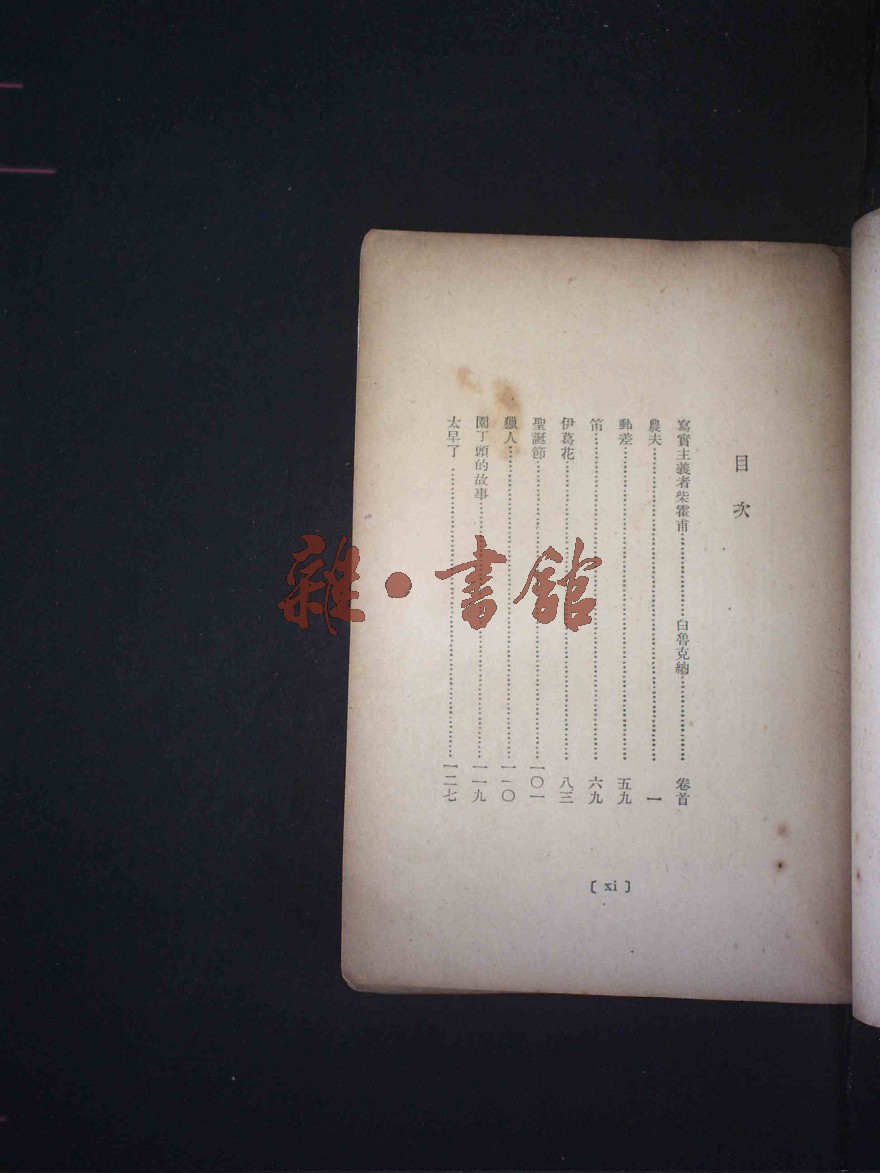 目次
寫實主義者柴霍甫……白魯克納……卷首
農夫……一
郵差……五九
笛……六九
伊葛花……八三
聖誕節……一〇一
獵人……一一〇
園丁頭的故事……一一九
太早了……一二七
〔xi〕
雜·書館